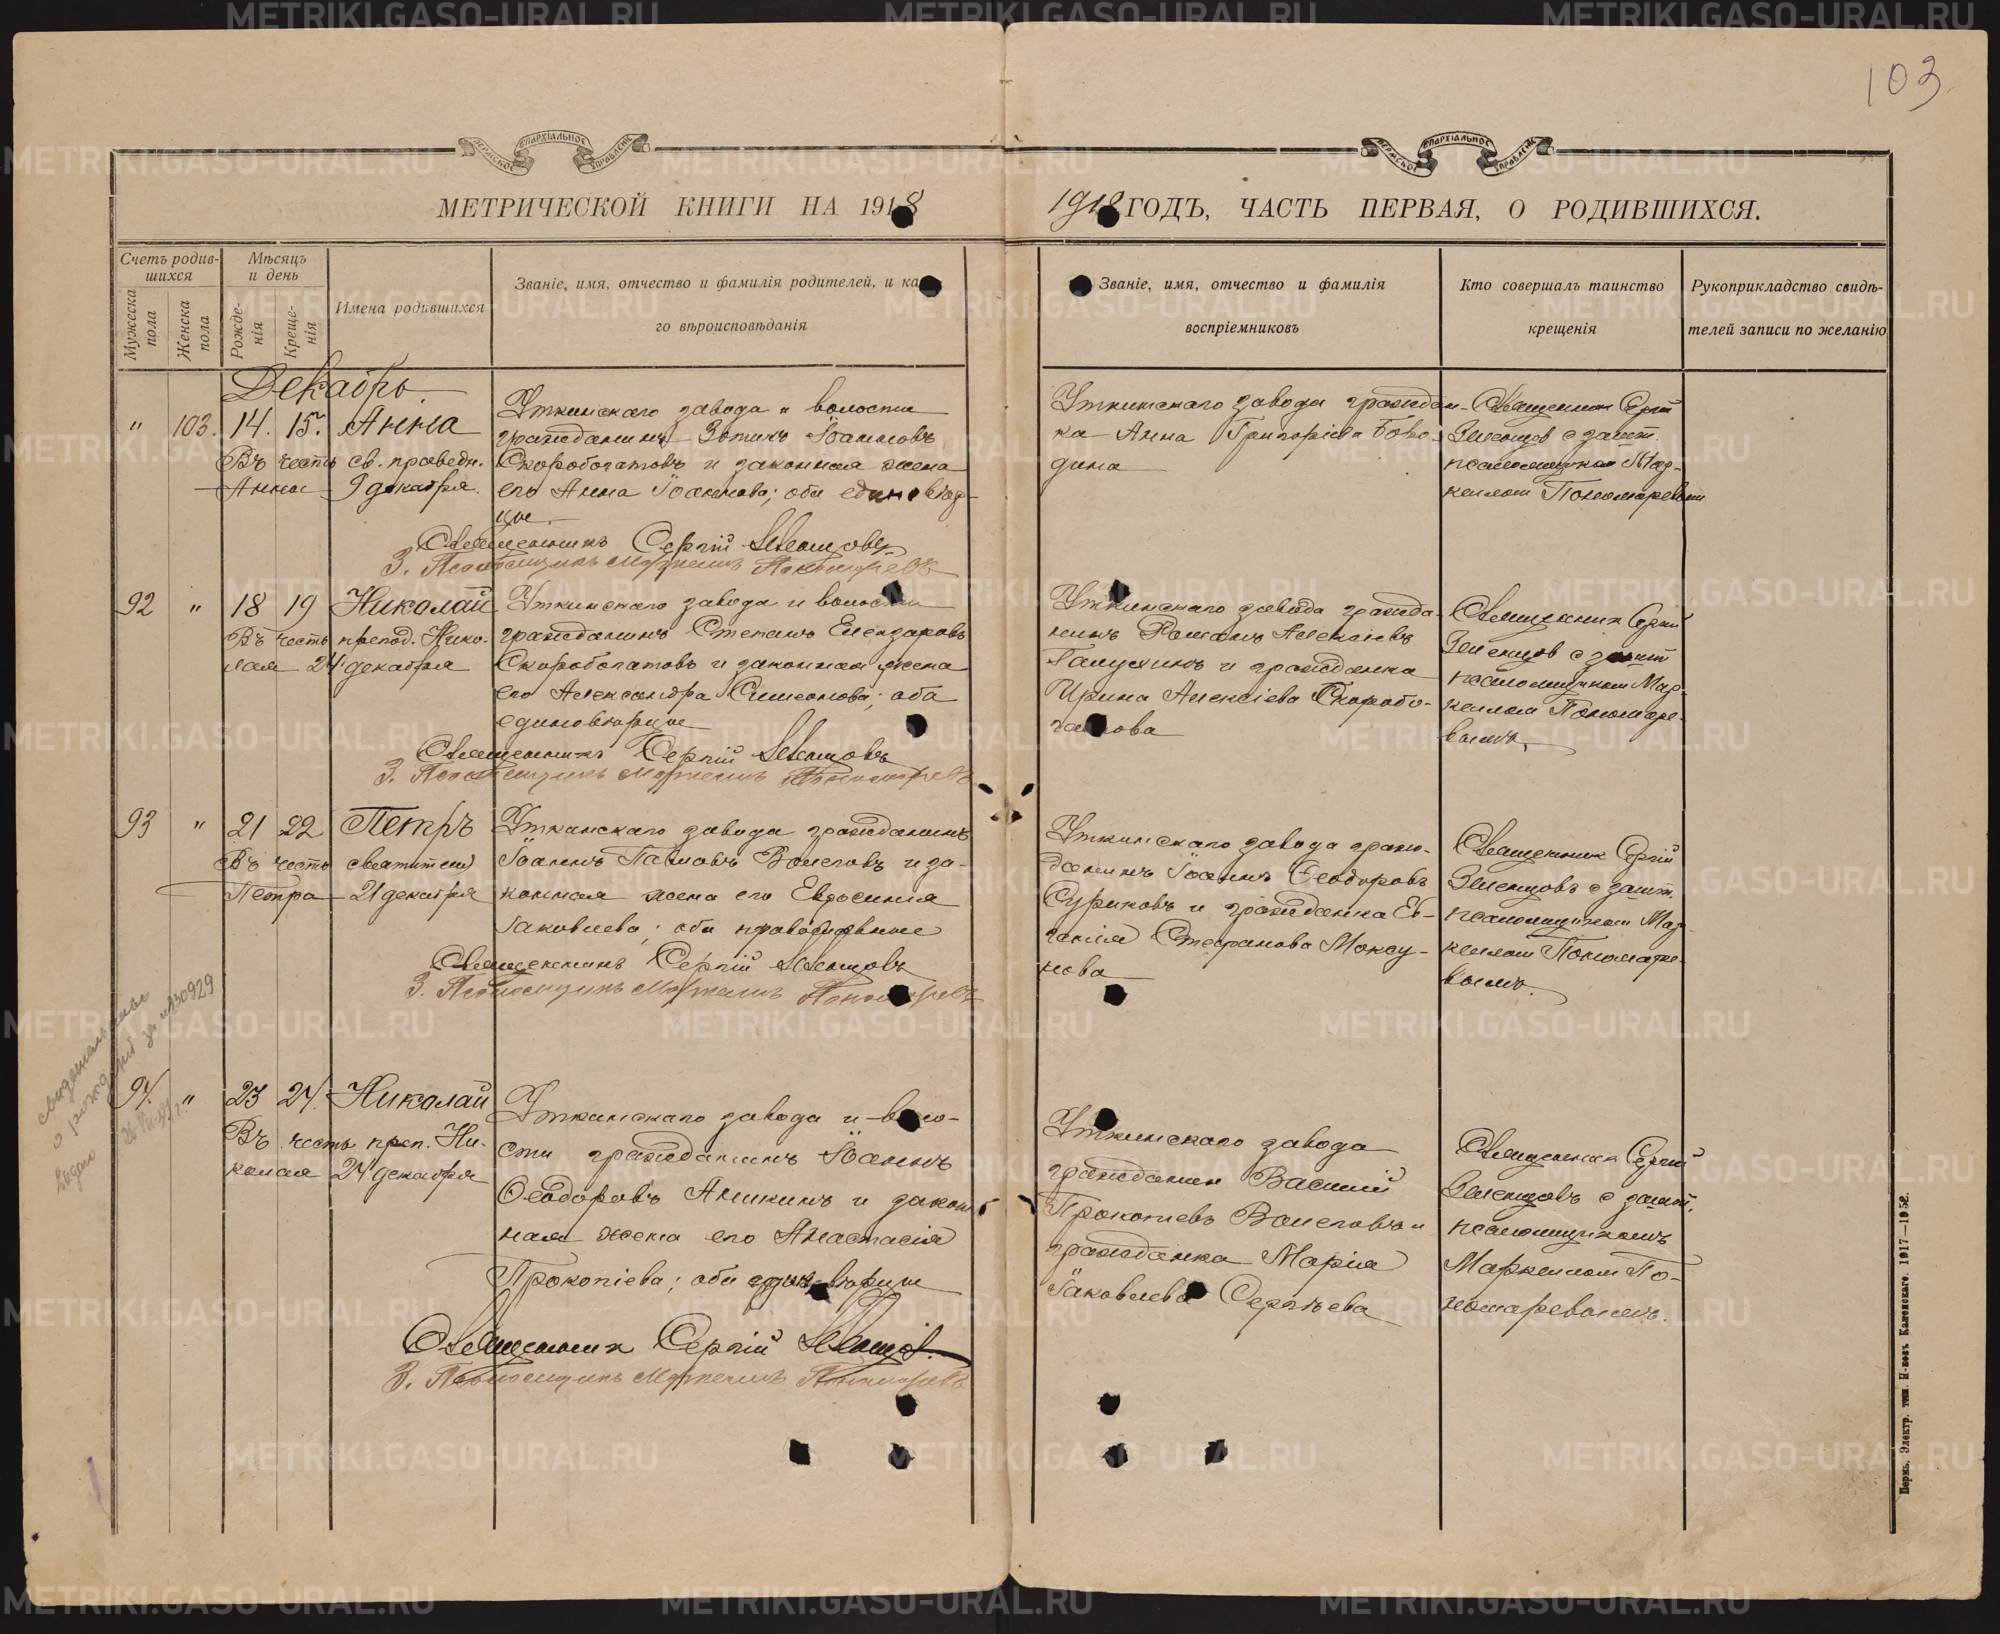 103
ПЕРМСКОЕ ЕПАРХІАЛЬНОЕ УПРАВЛЕНІЕ
ПЕРМСКОЕ ЕПАРХІАЛЬНОЕ УПРАВЛЕНІЕ
МЕТРИЧЕСКОЙ КНИГИ НА 1918
1918 ГОДЪ, ЧАСТЬ ПЕРВАЯ, О РОДИВШИХСЯ.
Счетъ родив-
шихся
Мужеска пола
Женска пола
Мѣсяцъ
и день
Рожде-
нія
Креще-
нія
Имена родившихся
Званіе, имя, отчество и фамилія родителей, и как
го вѣроисповѣданія
Званіе, имя, отчество и фамилія
воспріемниковъ
Кто совершалъ таинство
крещенія
Рукоприкладство свидѣ-
телей записи по желанію
Декабрь.
" 103. 14. 15. Анна
Въ честь св. праведн.
Анны 9 декабря.
Уткинскаго завода и волости
гражданинъ Зотикъ Іоанновъ
Скоробогатовъ и законная жена
его Анна Іоаннова; оба единовѣр-
цы.
Священникъ Сергій
З. Псаломщикъ Маркеллъ Пономаревъ
Уткинскаго завода граждан-
ка Анна Григоріева Боро-
дина
Священник Сергій
с зашт.
псаломщиком Мар-
келлом Пономаревым
92 " 18 19 Николай
Въ честь препод. Нико-
лая 24 декабря
Уткинскаго завода и волости
гражданинъ Стефанъ Елеазаровъ
Скоробогатовъ и законная жена
его Александра Симеонова; оба
единовѣрцы
Священникъ Сергій
З. Псаломщикъ Маркеллъ Пономаревъ
Уткинскаго завода гражда-
нинъ Романъ Алексіевъ
Галушинъ и гражданка
Ирина Алексіева Скоробо-
гатова
Священник Сергій
с зашт
псаломщиком Мар-
келлом Пономаре-
вымъ.
93 " 21 22 Петръ
Въ честь святителя
Петра 21 декабря
Уткинскаго завода гражданинъ
Іоаннъ Павловъ Волеговъ и за-
конная жена его Евфосинія
Іаковлева; оба православные
Священникъ Сергій
З. Псаломщикъ Маркеллъ Пономаревъ
Уткинскаго завода граж-
данинъ Іоаннъ Ѳеодоровъ
Суриковъ и гражданка Ев-
Стефанова Моксу-
нова
Священник Сергій
с зашт.
псаломщиком Мар-
келлом Пономаре-
вымъ.
свидетельство
о рождении за № 130929
94. " 23 24. Николай
Въ честь преп. Ни-
колая 24 декабря
Уткинскаго завода и воло-
сти гражданинъ Іоаннъ
Ѳеодоровъ Аникинъ и закон
ная жена его Анастасія
Прокопіева; оба единовѣрцы
Священник Сергій
З. Псаломщикъ Маркеллъ Пономаревъ
Уткинскаго завода
гражданин Василій
Прокопіевъ Волеговъ и
гражданка Марія
Іаковлева Сергѣева
Священник Сергій
с зашт.
псаломщикомъ
Маркеллом По-
номаревымъ.
Пермь. Электр. тип. Н-ковъ Каменскаго. 1917—1958.
METRIKI.GASO-URAL.RU